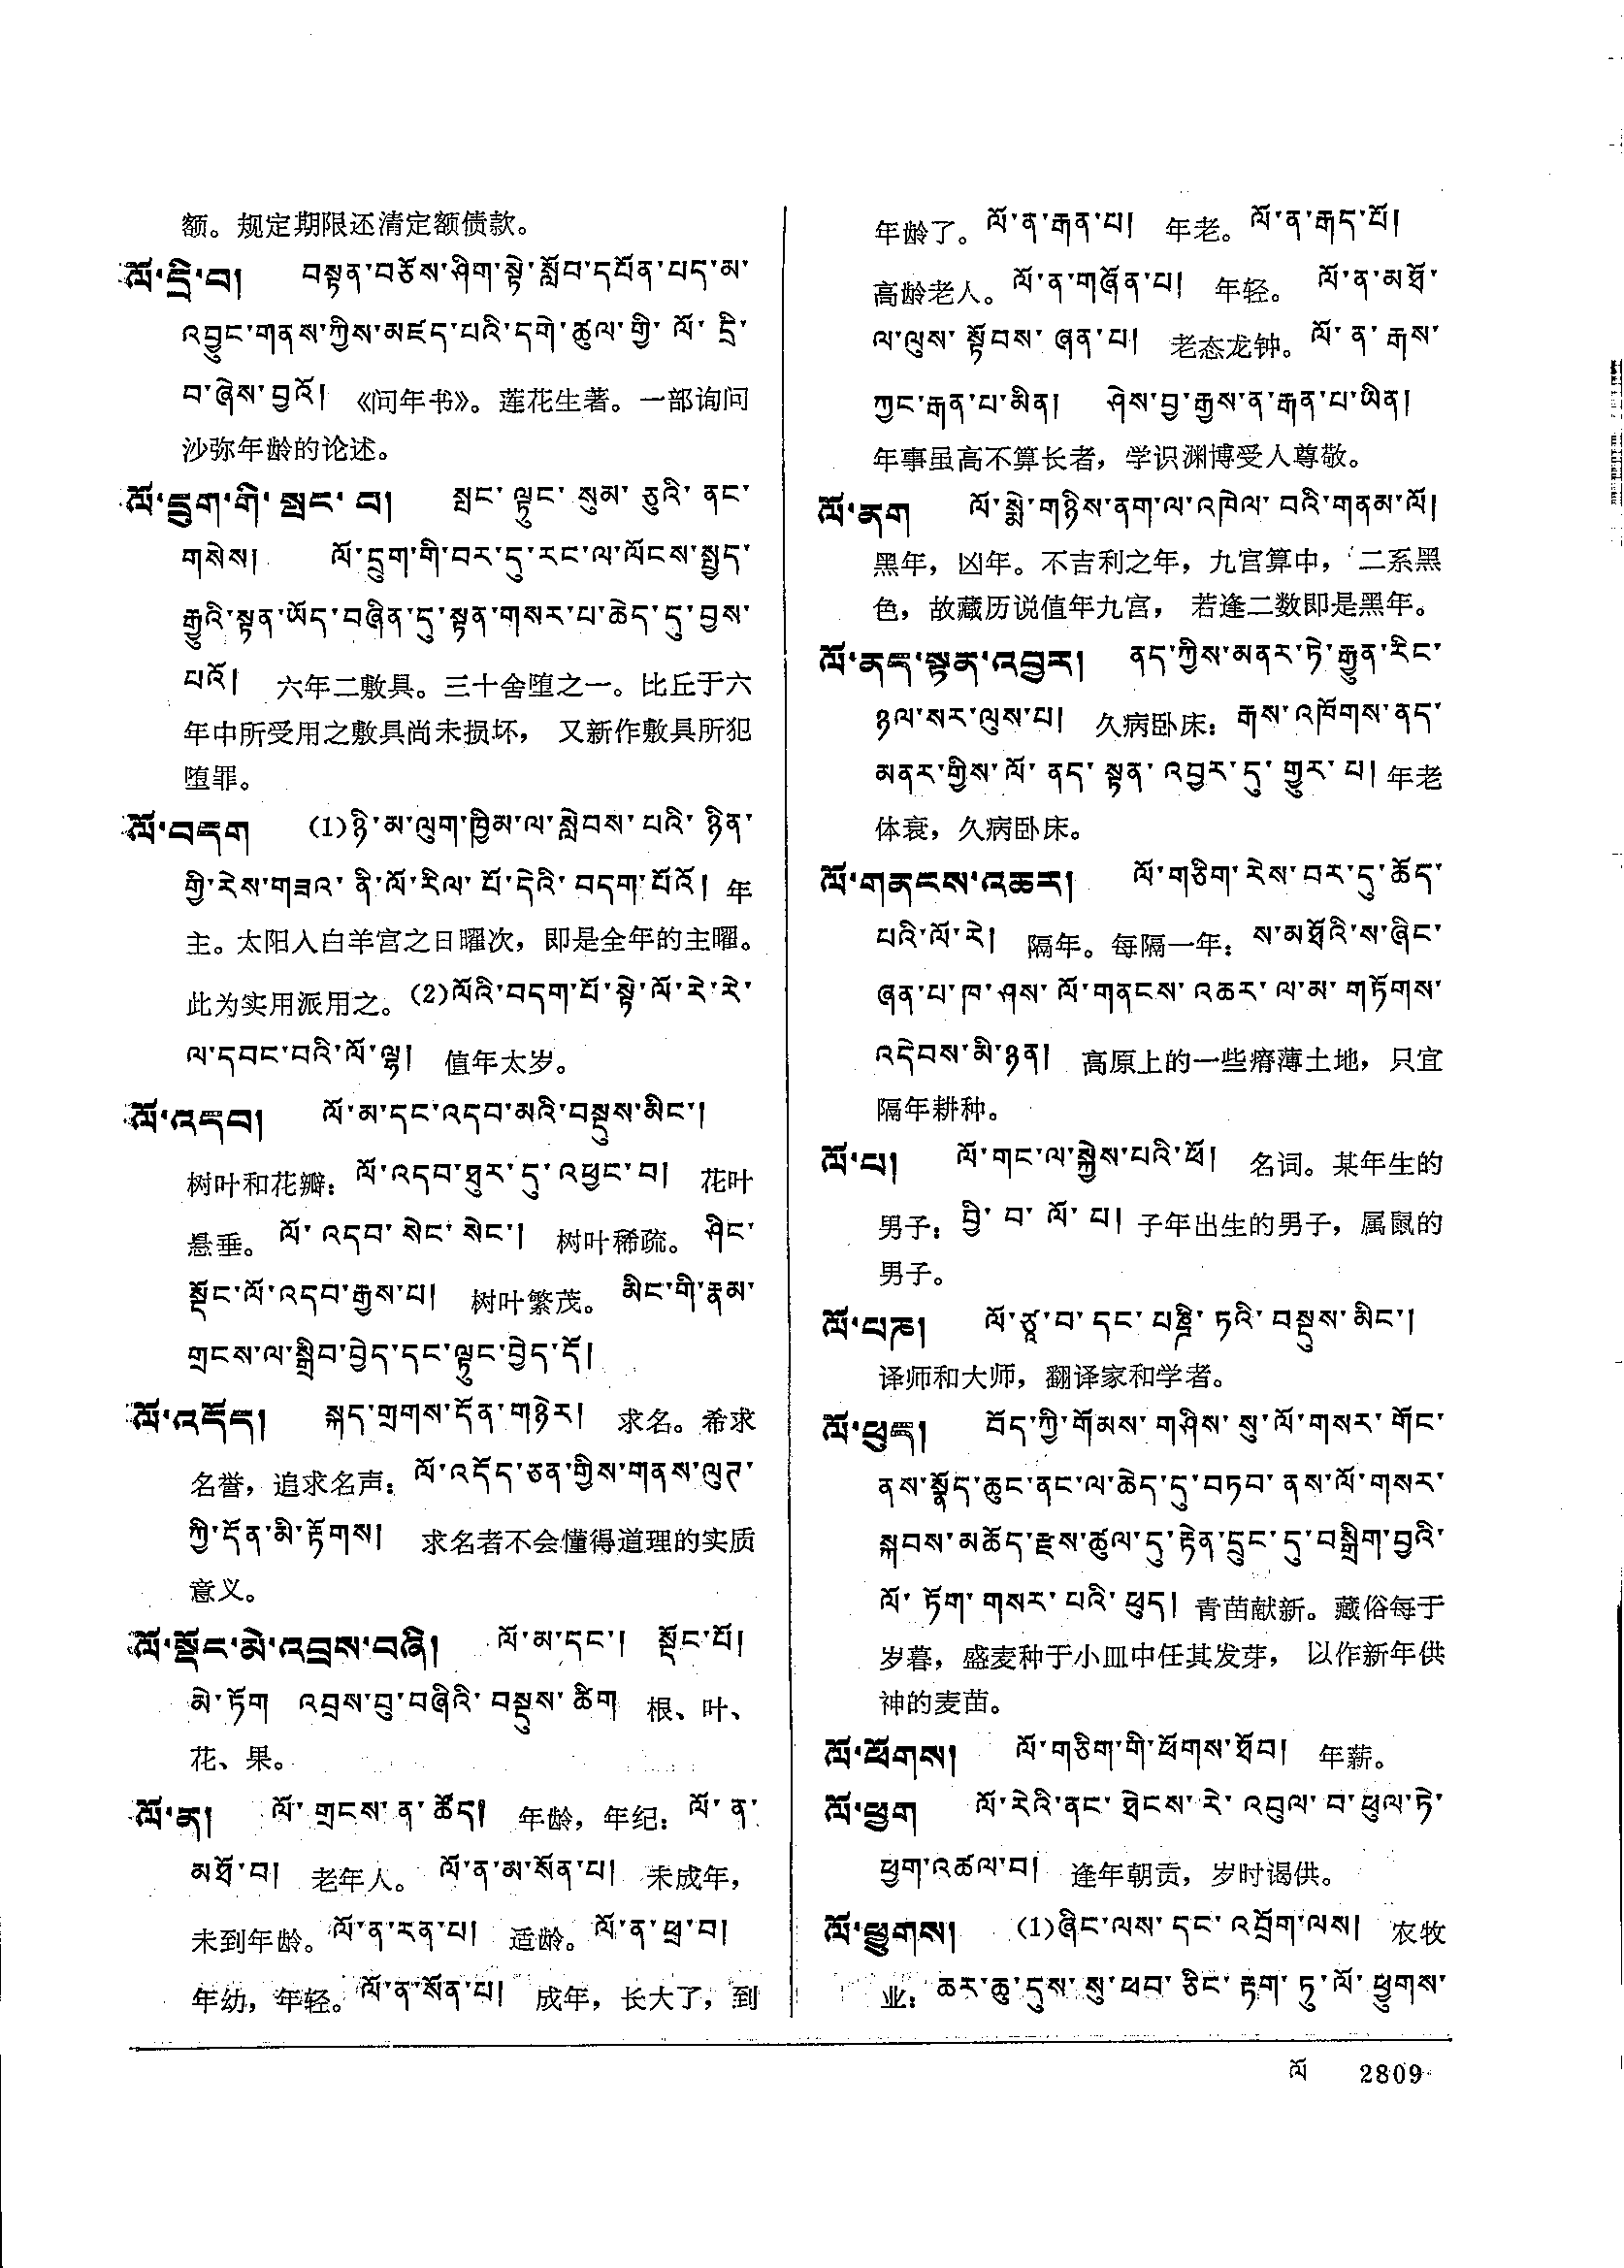 额。规定期限还清定额债款。
ལོ་དྲི་བ། བསྟན་བཅོས་ཤིག་སྟེ་སློབ་དཔོན་པད་མ་
འབྱུང་གནས་ཀྱིས་མཛད་པའི་དགེ་ཚུལ་གྱི་ ལོ་ དྲི་
བ་ཞེས་བྱའོ། 《问年书》。莲花生著。一部询问
沙弥年龄的论述。
ལོ་དྲུག་གི་སྤང་བ། སྤང་ ལྟུང་ སུམ་ ཅུའི་ ནང་
གསེས། ལོ་དྲུག་གི་བར་དུ་རང་ལ་ལོངས་སྤྱད་
རྒྱུའི་སྟན་ཡོད་བཞིན་དུ་སྟན་གསར་པ་ཆེད་དུ་བྱས་
པའོ། 六年二敷具。三十舍堕之一。比丘于六
年中所受用之敷具尚未损坏， 又新作敷具所犯
堕罪。
ལོ་བདག (1)ཉི་མ་ལུག་ཁྱིམ་ལ་སླེབས་ པའི་ ཉིན་
གྱི་རེས་གཟའ་ ནི་ལོ་རིལ་ པོ་དེའི་ བདག་པོའོ། 年
主。太阳入白羊宫之日曜次，即是全年的主曜。
此为实用派用之。(2)ལོའི་བདག་པོ་སྟེ་ལོ་རེ་རེ་
ལ་དབང་བའི་ལོ་ལྷ། 值年太岁。
ལོ་འདབ། ལོ་མ་དང་འདབ་མའི་བསྡུས་མིང་།
树叶和花瓣：ལོ་འདབ་ཐུར་དུ་འཕྱང་བ། 花叶
悬垂。ལོ་ འདབ་ སེང་ སེང་། 树叶稀疏。ཤིང་
སྡོང་ལོ་འདབ་རྒྱས་པ། 树叶繁茂。མིང་གི་རྣམ་
གྲངས་ལ་སྒྲིབ་བྱེད་དང་ལྟུང་བྱེད་དོ།
ལོ་འདོད། སྐད་གྲགས་དོན་གཉེར། 求名。希求
名誉，追求名声：ལོ་འདོད་ཅན་གྱིས་གནས་ལུཊ་
ཀྱི་དོན་མི་རྟོགས། 求名者不会懂得道理的实质
意义。
ལོ་སྡོང་མེ་འབྲས་བཞི། ལོ་མ་དང་། སྡོང་པོ།
མེ་ཏོག འབྲས་བུ་བཞིའི་ བསྡུས་ ཚིག 根、叶、
花、果。
ལོ་ན། ལོ་ གྲངས་ ན་ ཚོད། 年龄，年纪：ལོ་ ན་
མཐོ་བ། 老年人。 ལོ་ན་མ་སོན་པ། 未成年，
未到年龄。ལོ་ན་རན་པ། 适龄。ལོ་ན་ཕྲ་བ།
年幼，年轻。ལོ་ན་སོན་པ། 成年，长大了，到
年龄了。ལོ་ན་རྒན་པ། 年老。ལོ་ན་རྒད་པོ།
高龄老人。ལོ་ན་གཞོན་པ། 年轻。 ལོ་ན་མཐོ་
ལ་ལུས་ སྟོབས་ ཞན་པ། 老态龙钟。ལོ་ ན་ རྒས་
ཀྱང་རྒན་པ་མིན། ཤེས་བྱ་རྒྱས་ན་རྒན་པ་ཡིན།
年事虽高不算长者，学识渊博受人尊敬。
ལོ་ནག ལོ་སྨེ་གཉིས་ནག་ལ་འཁེལ་ བའི་གནམ་ལོ།
黑年，凶年。不吉利之年，九宫算中，二系黑
色，故藏历说值年九宫， 若逢二数即是黑年。
ལོ་ནད་སྟན་འབྱར། ནད་ཀྱིས་མནར་ཏེ་རྒྱུན་རིང་
ཉལ་སར་ལུས་པ། 久病卧床：རྒས་འཁོགས་ནད་
མནར་གྱིས་ལོ་ ནད་ སྟན་ འབྱར་དུ་ གྱུར་ པ། 年老
体衰，久病卧床。
ལོ་གནངས་འཆར། ལོ་གཅིག་ རེས་བར་དུ་ཆོད་
པའི་ལོ་རེ། 隔年。每隔一年：ས་མཐོའི་ས་ཞིང་
ཞན་པ་ཁ་ཤས་ ལོ་གནངས་ འཆར་ ལ་མ་ གཏོགས་
འདེབས་མི་ཉན། 高原上的一些瘠薄土地，只宜
隔年耕种。
ལོ་པ། ལོ་གང་ལ་སྐྱེས་པའི་ཕོ། 名词。某年生的
男子：བྱི་ བ་ ལོ་ པ། 子年出生的男子，属鼠的
男子。
ལོ་པཎ། ལོ་ཙཱ་བ་ དང་ པཎྜི་ ཏའི་ བསྡུས་མིང་།
译师和大师，翻译家和学者。
ལོ་ཕུད། བོད་ཀྱི་གོམས་གཤིས་སུ་ལོ་གསར་གོང་
ནས་སྣོད་ཆུང་ནང་ལ་ཆེད་དུ་བཏབ་ནས་ལོ་གསར་
སྐབས་མཆོད་རྫས་ཚུལ་དུ་རྟེན་དྲུང་དུ་བསྒྲིག་བྱའི་
ལོ་ ཏོག་ གསར་ པའི་ ཕུད། 青苗献新。藏俗每于
岁暮，盛麦种于小皿中任其发芽， 以作新年供
神的麦苗。
ལོ་ཕོགས། ལོ་གཅིག་གི་ཕོགས་ཐོབ། 年薪。
ལོ་ཕྱག ལོ་རེའི་ནང་ ཐེངས་ རེ་ འབུལ་ བ་ ཕུལ་ཏེ་
ཕྱག་འཚལ་བ། 逢年朝贡，岁时谒供。
ལོ་ཕྱུགས། (1)ཞིང་ལས་ དང་ འབྲོག་ལས། 农牧
业：ཆར་ཆུ་དུས་ སུ་ ཕབ་ ཅིང་ རྟག་ ཏུ་ལོ་ ཕྱུགས་
ལོ 2809